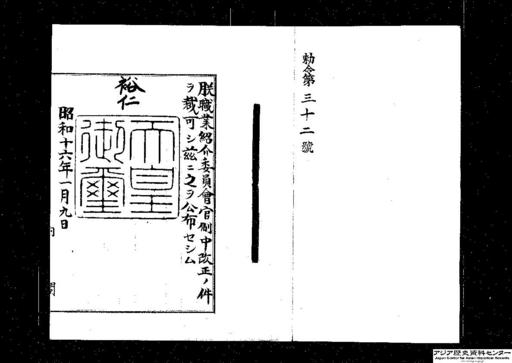 勅令第三十二號
朕職業紹介委員會官制中改正ノ件
ヲ裁可シ茲ニ之ヲ公布セシム
裕仁
天皇御璽
昭和十六年一月九日
内閣
アジア歴史資料センター
Japan Center for Asian Historical Records